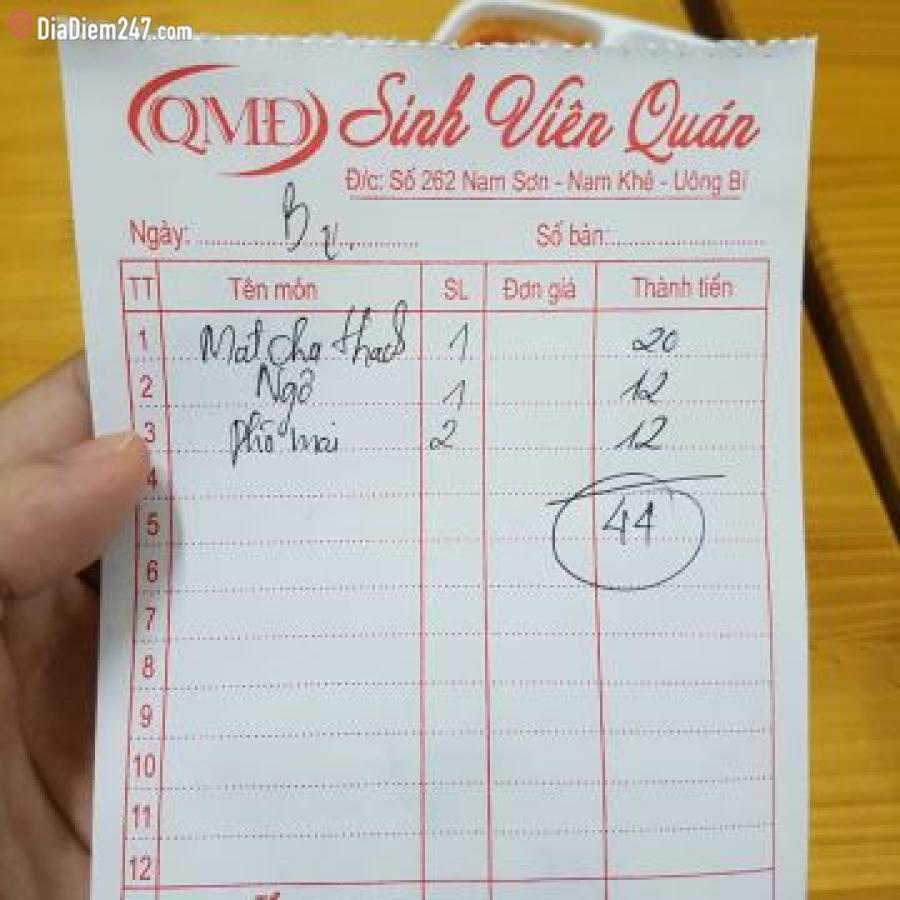 DiaDiem247.com
QMĐ Sinh Viên Quán
Đ/c: Số 262 Nam Sơn - Nam Khê - Uông Bí
Ngày: Số bàn:
TT Tên món SL Đơn giá Thành tiền
1 Matcha thạch 1 20
2 Ngô 1 12
3 Phô mai 2 12
4
5 44
6
7
8
9
10
11
12